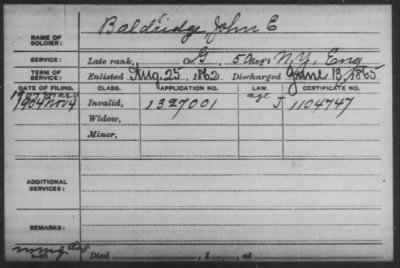 NAME OF SOLDIER: Baldridge, John E
SERVICE: Late rank, Co. G, 50 Reg't N.Y. Eng
TERM OF SERVICE: Enlisted Aug. 25, 1862 Discharged June 13, 1865
DATE OF FILING. CLASS. APPLICATION NO. LAW. CERTIFICATE NO.
1904 Nov 4 Invalid, 1327001 age J 1104747
Widow,
Minor,
ADDITIONAL SERVICES:
REMARKS:
Died , 1 , at